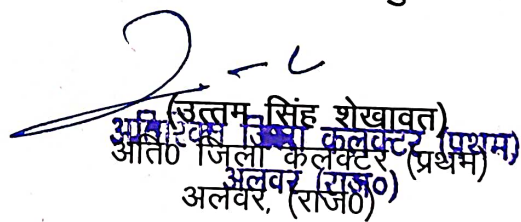 (उत्तम सिंह शेखावत)
अतिरिक्त जिला कलक्टर (प्रथम)
अति0 जिला कलेक्टर (प्रथम)
अलवर (राज0)
अलवर, (राज0)